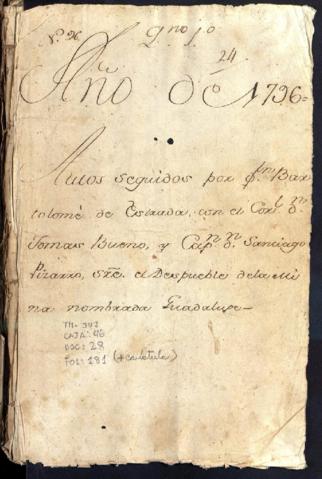 Qno 1o
24
Año de 1796=
Autos seguidos por Dn Bar
tolomé de Estrada, con el Corl. Dn.
Tomas Bueno, y Capn. Dn. Santiago
Pizarro, Sre. el Despueble de la Mi
na nombrada Guadalupe—
TM- 
CAJA: 46
DOC: 28
FOL: 181 (+ carátula)